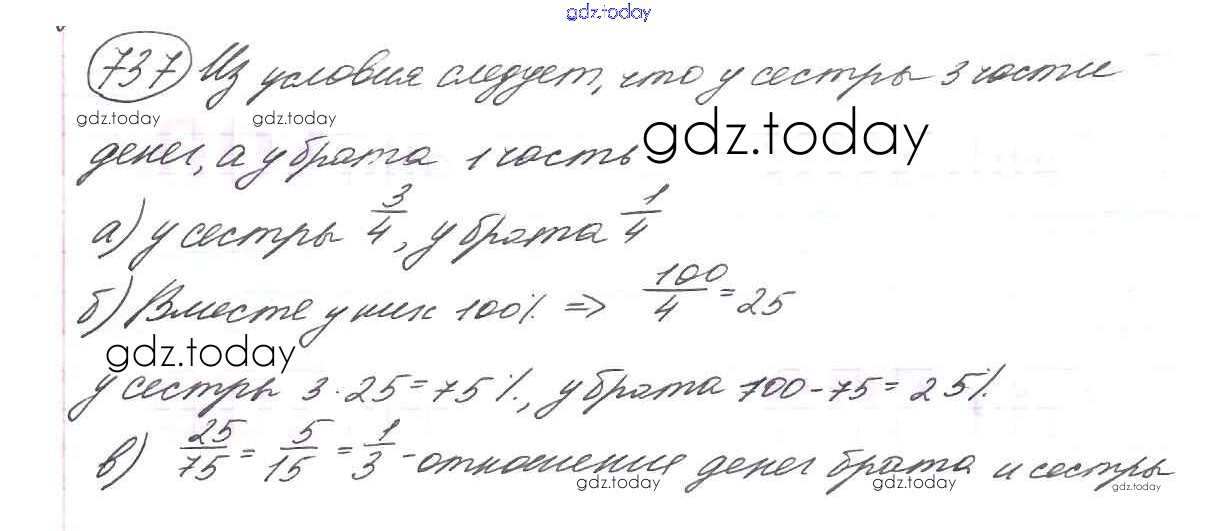 gdz.today
737 Из условия следует, что у сестры 3 части
gdz.today gdz.today
денег, а у брата 1 часть gdz.today
а) у сестры 3/4, у брата 1/4
б) Вместе у них 100% => 100/4 = 25
gdz.today
у сестры 3 · 25 = 75%, у брата 100 - 75 = 25%
в) 25/75 = 5/15 = 1/3 - отношение денег брата и сестры
gdz.today gdz.today gdz.today